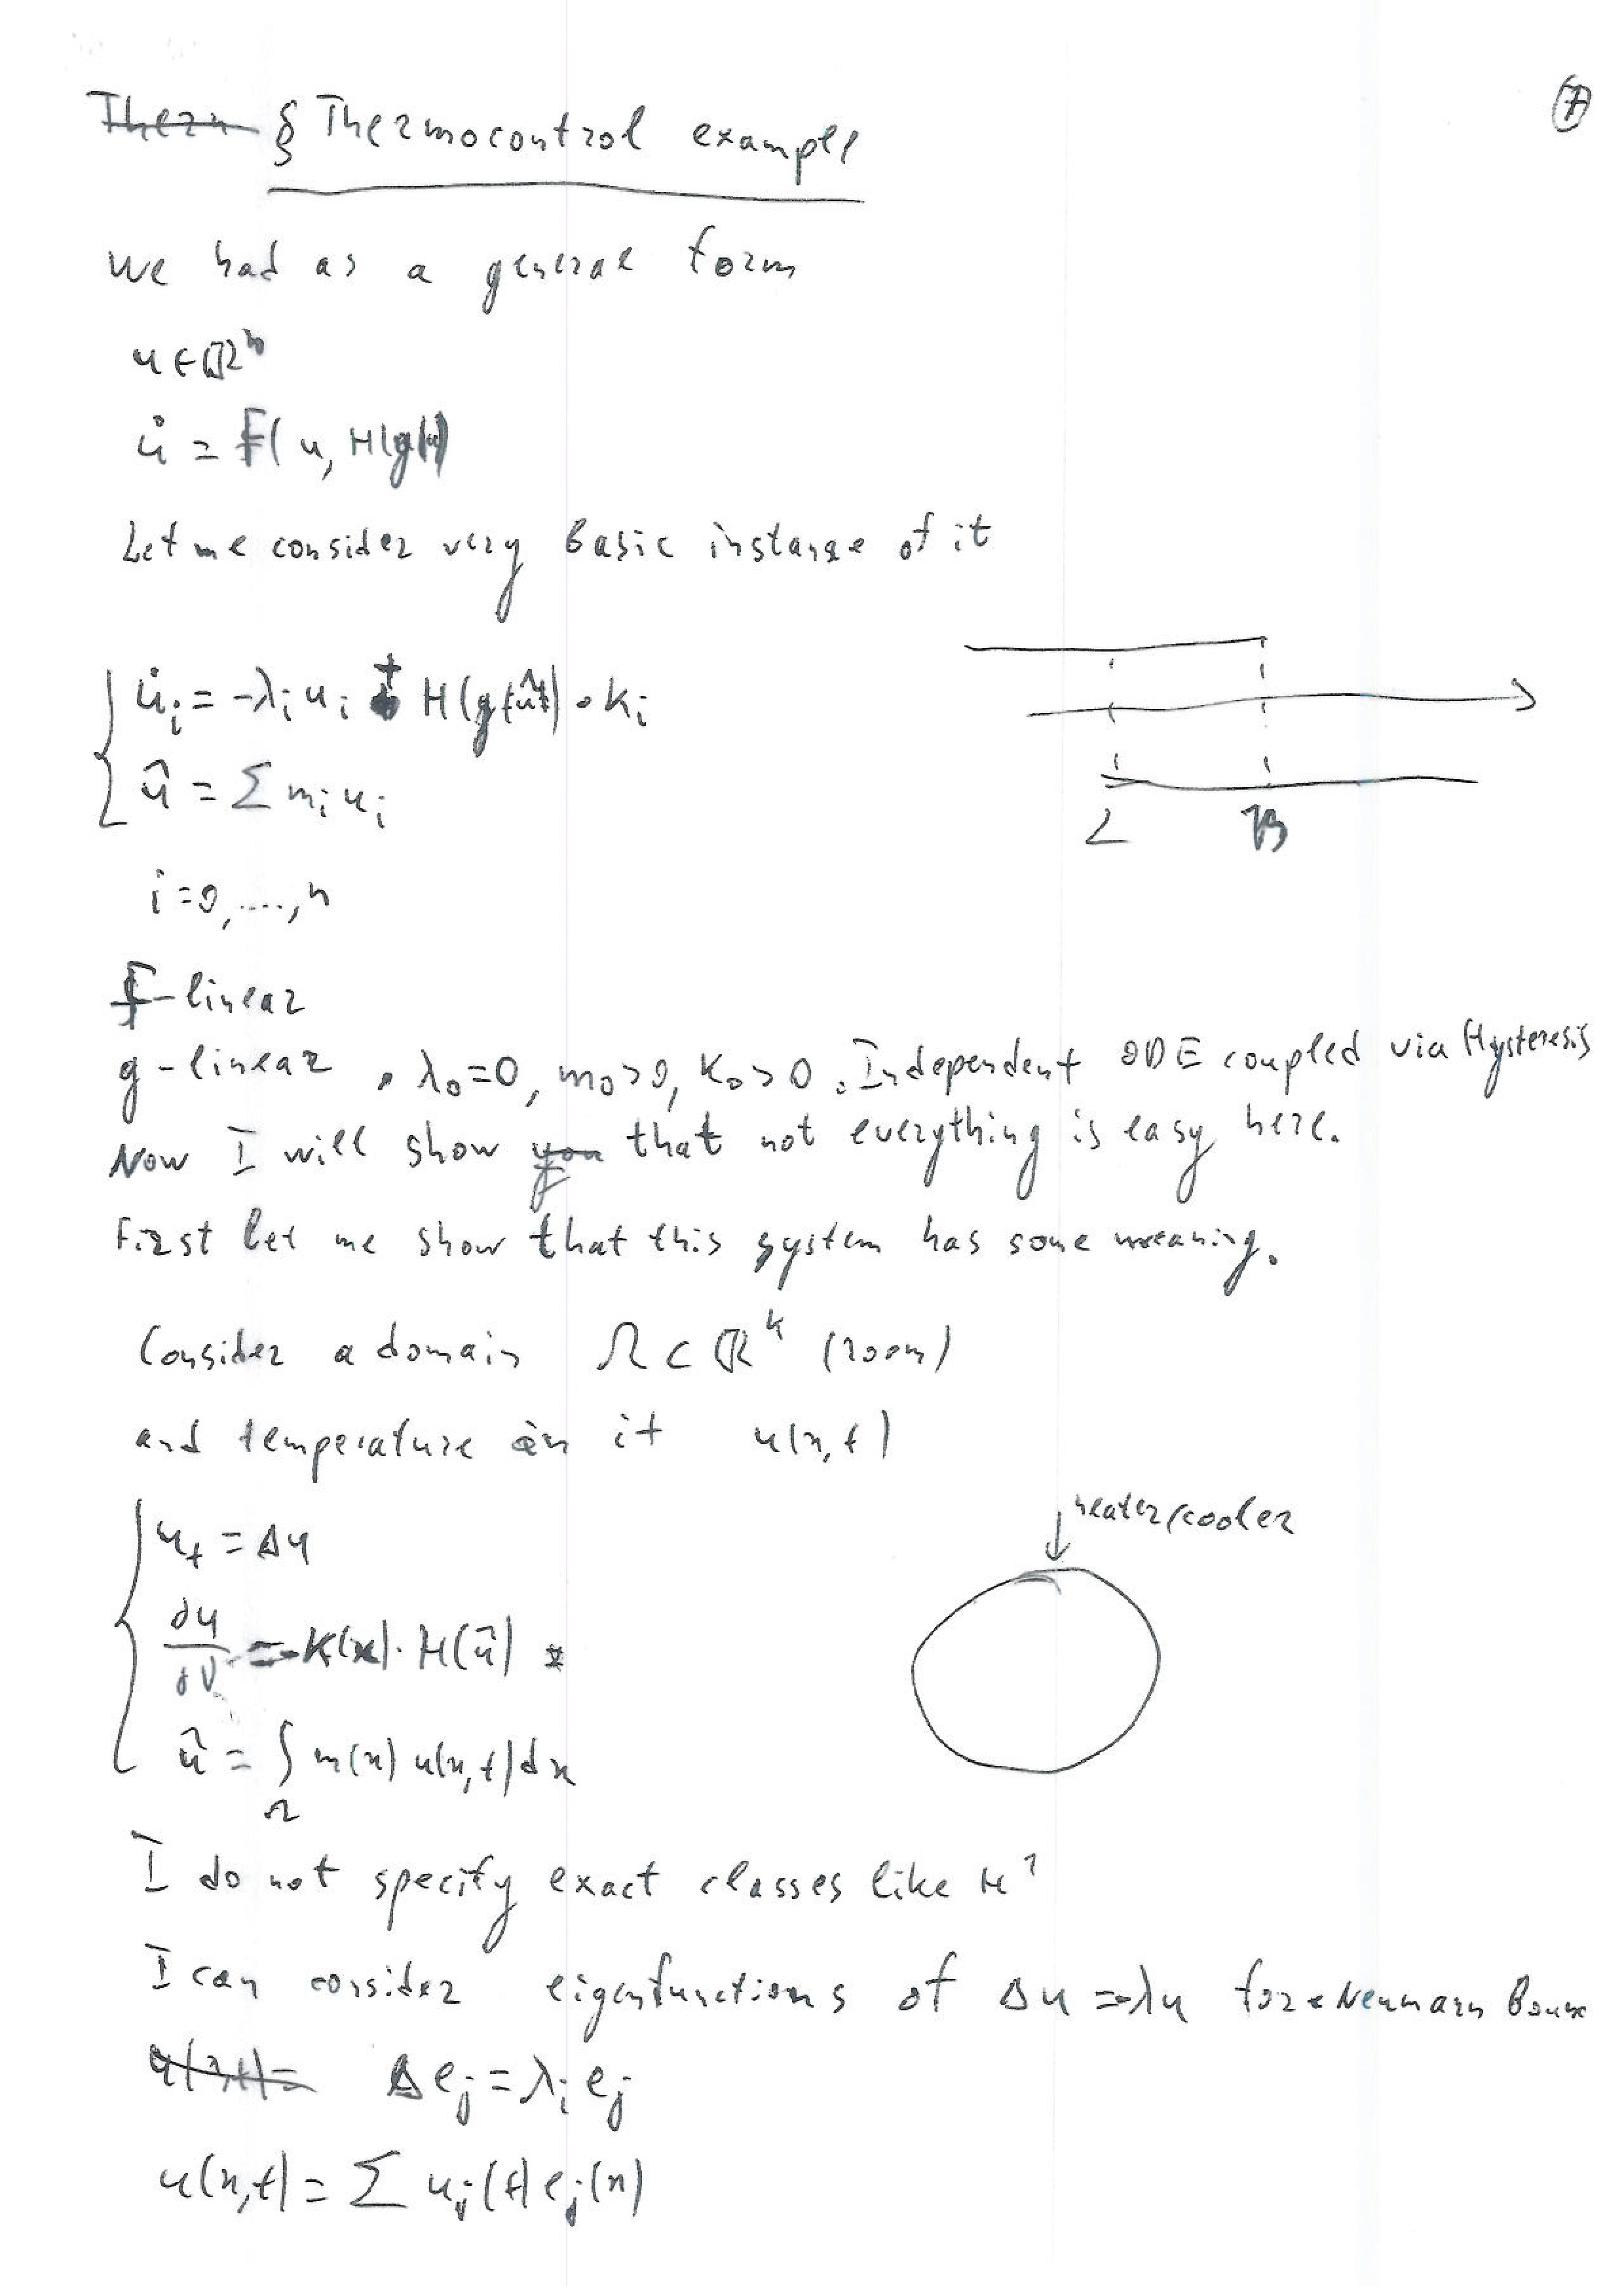 Therm § Thermocontrol example
7
We had as a general form
u ∈ ℝⁿ
u̇ = F(u, H(g(u))
Let me consider very basic instance of it
u̇ᵢ = -λᵢ uᵢ + H(g(û)) · kᵢ
û = Σ mᵢ uᵢ
α β
i = 0, ...., n
F - linear
g - linear . λ₀=0, m₀>0, K₀>0 . Independent ODE coupled via Hysteresis
Now I will show you that not everything is easy here.
First let me show that this system has some meaning.
Consider a domain Ω ⊂ ℝᵏ (room)
and temperature in it u(x,t)
heater/cooler
uₜ = Δu
∂u/∂ν = K(x) · H(û)
û = ∫_Ω m(x) u(x,t) dx
I do not specify exact classes like H¹
I can consider eigenfunctions of Δu = -λu for Neumann Boun
u(x,t) = Δeⱼ = λⱼ eⱼ
u(x,t) = Σ uⱼ(t) eⱼ(x)